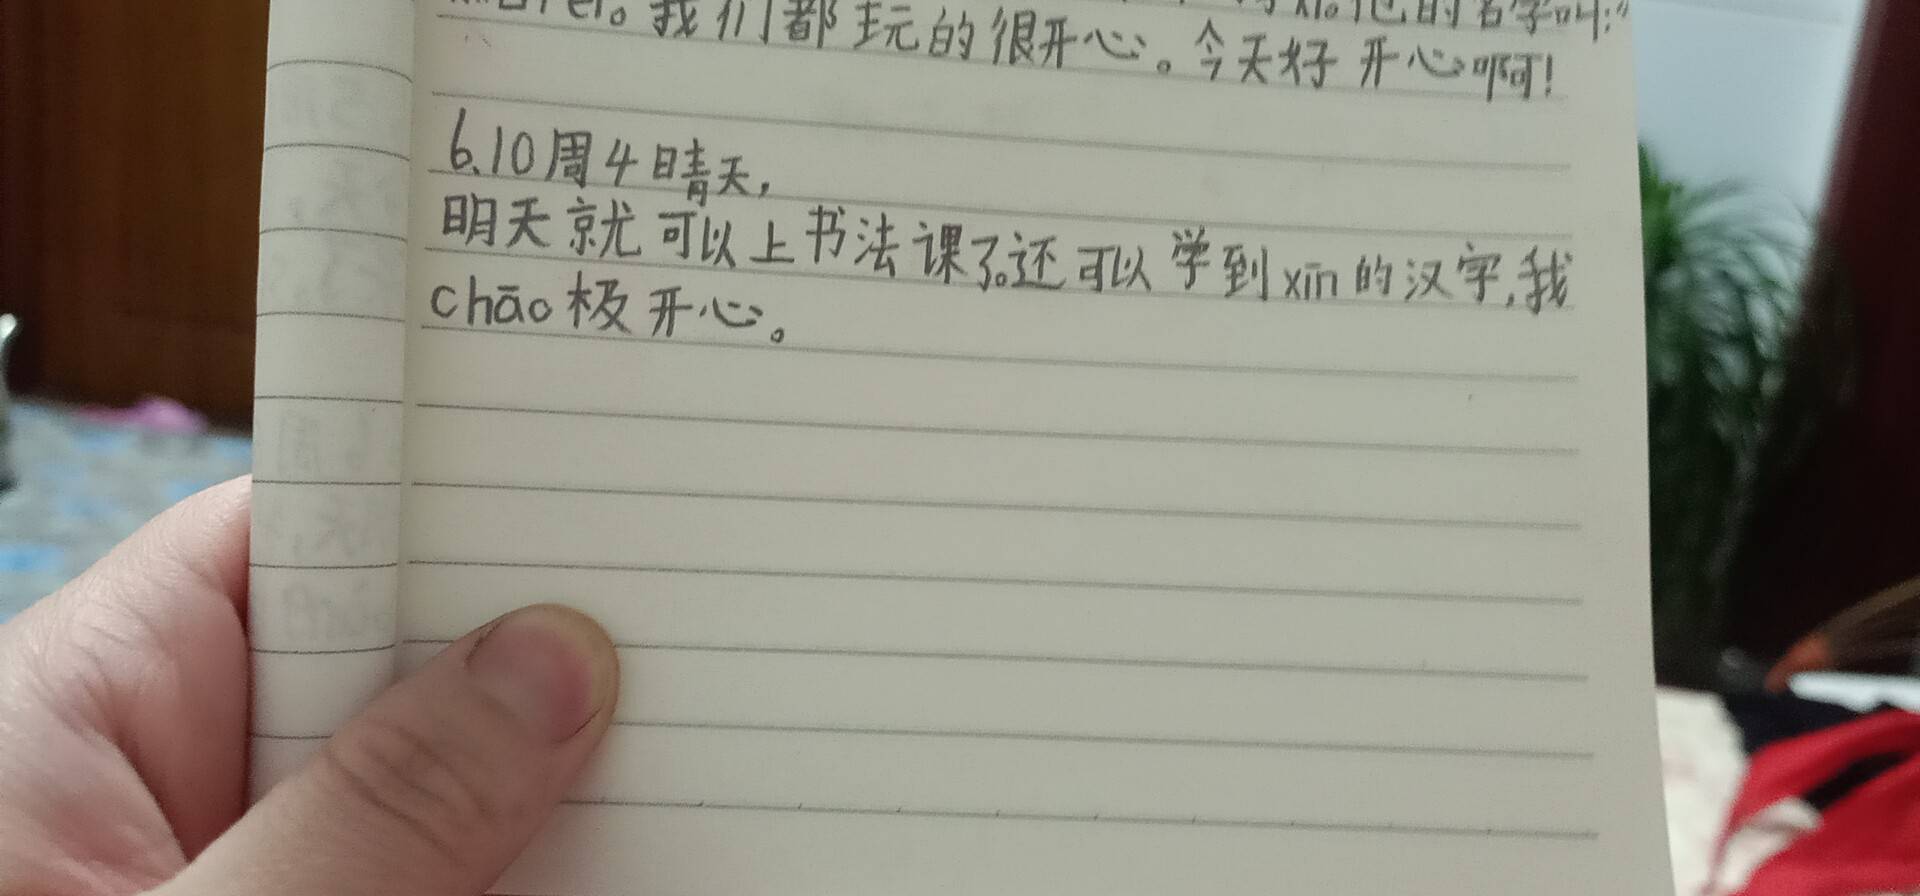 我们都玩的很开心。今天好开心啊!
6.10周4晴天,
明天就可以上书法课了。还可以学到xīn的汉字,我
chāo极开心。